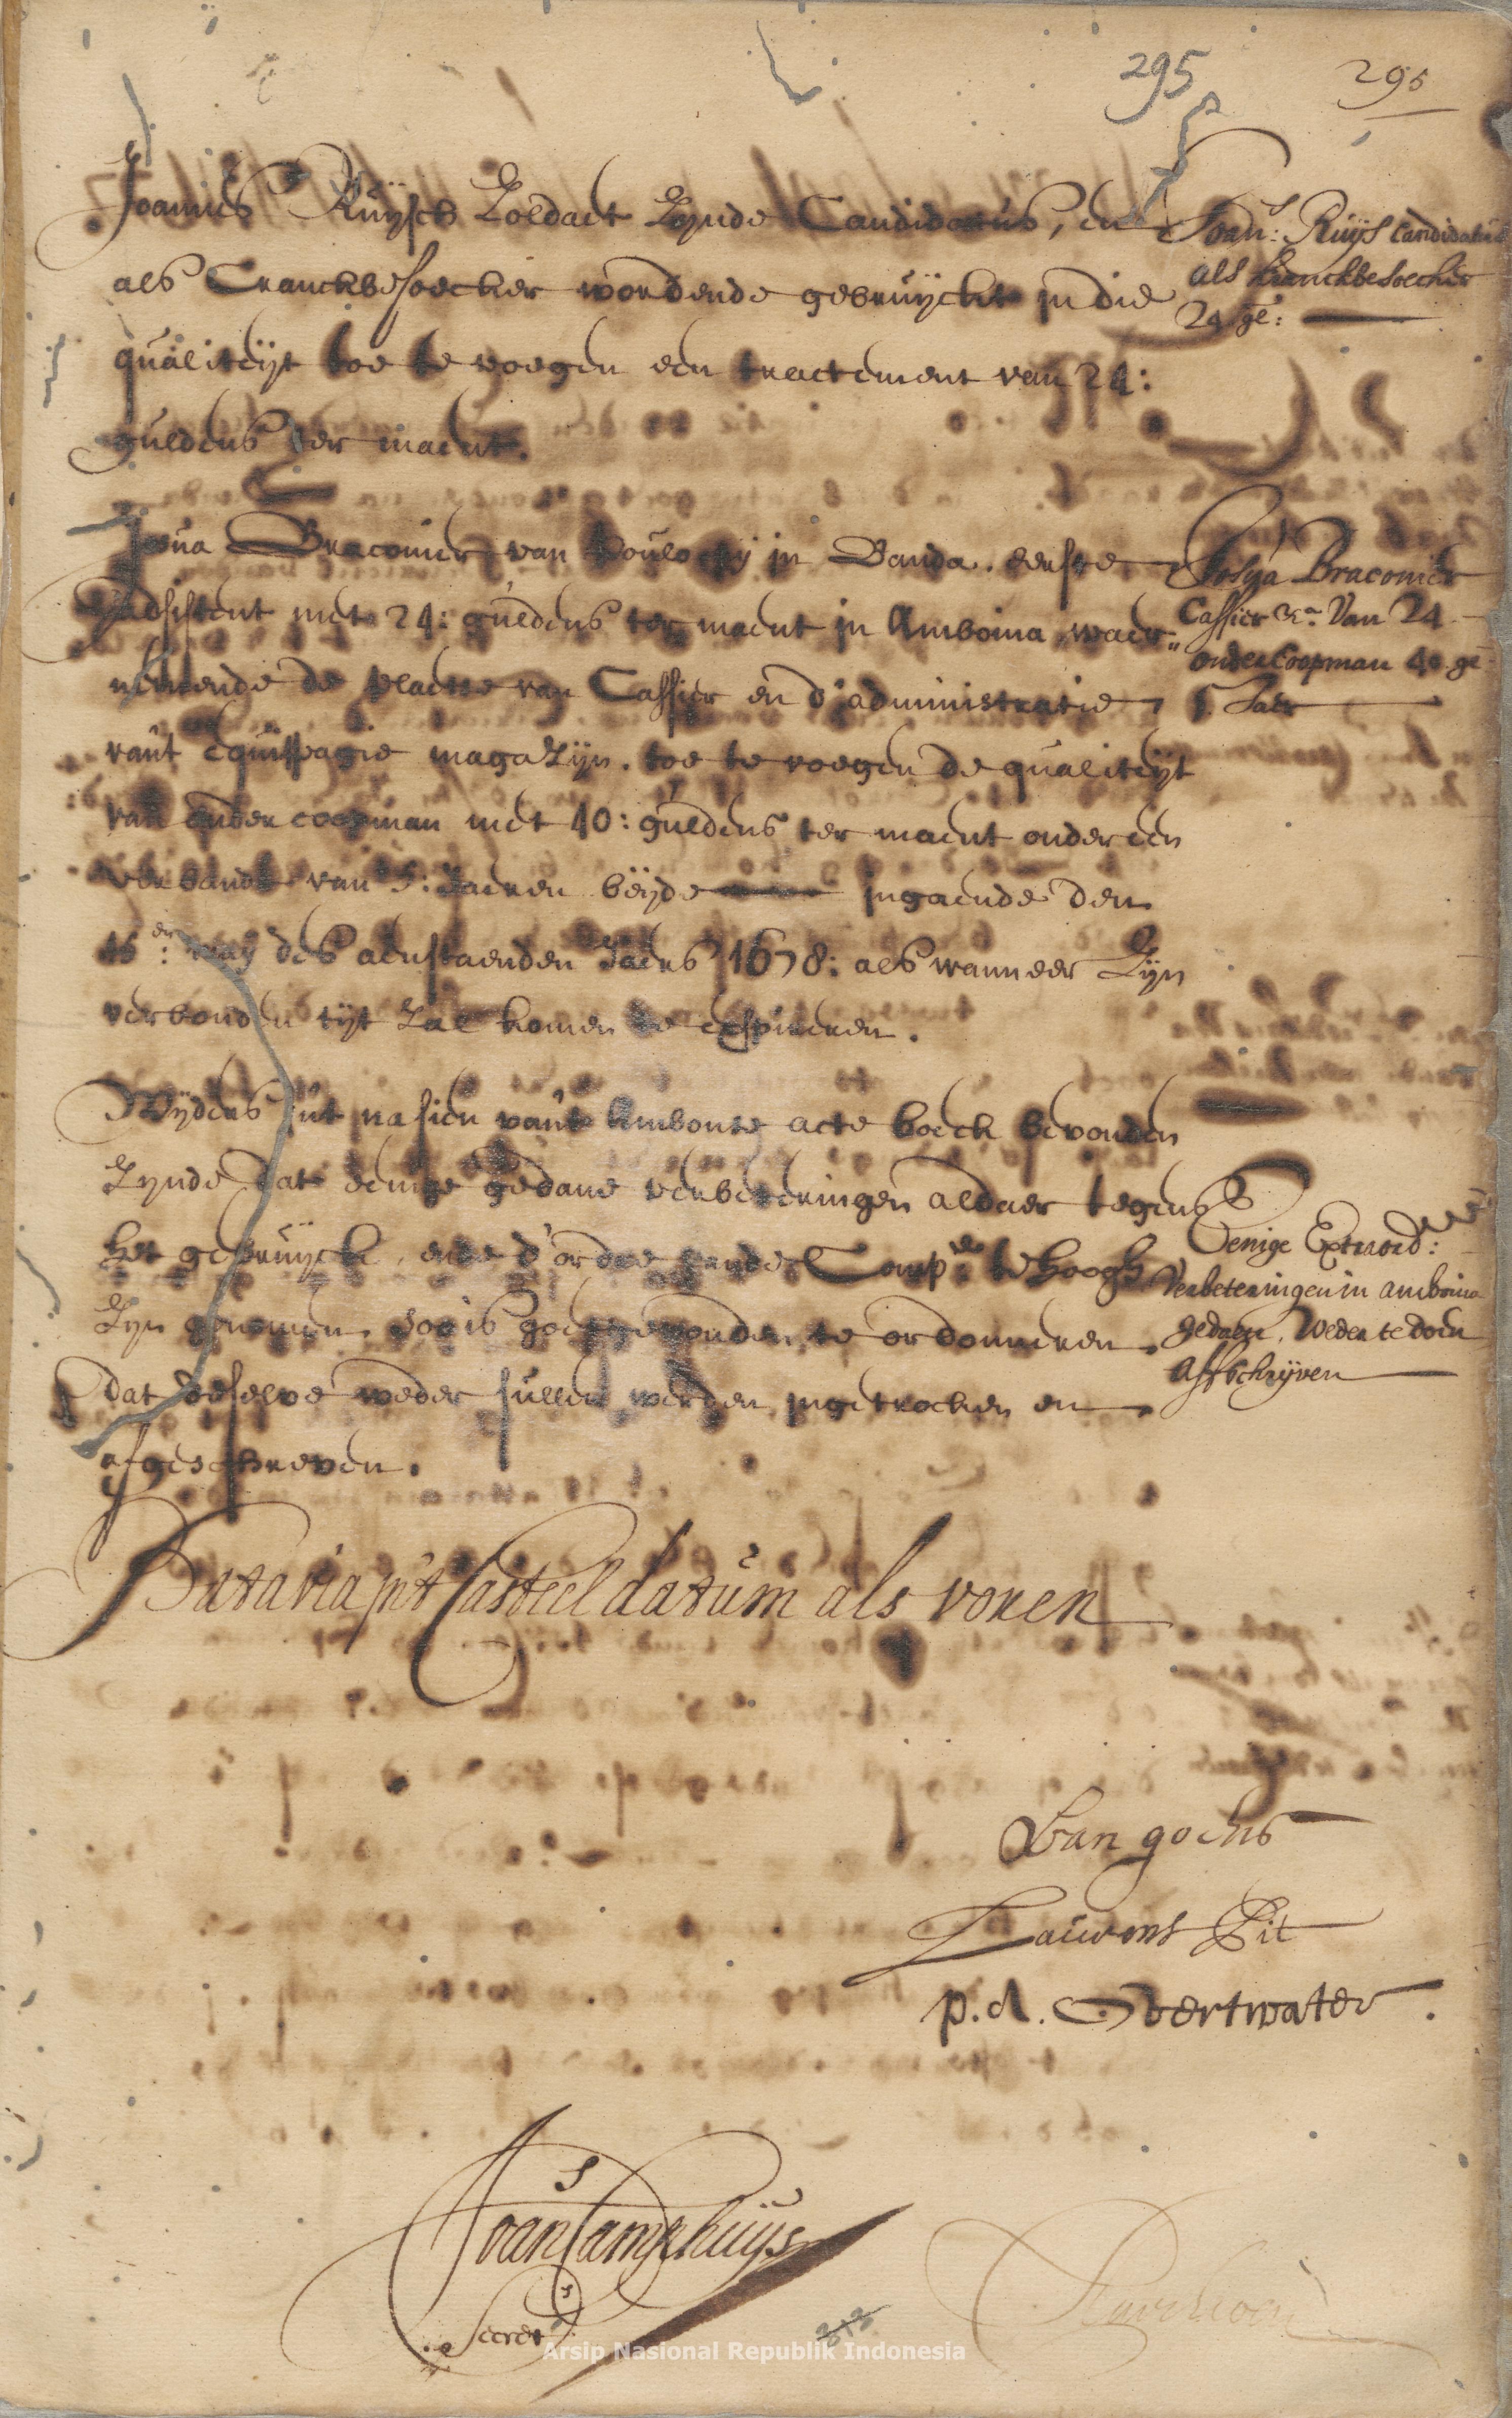 295
295
Joannes Ruijsch Soldaet Zynde Candidatus, en
als Cranckbesoecker wordende gebruijckt in die
qualiteijt toe te voegen een tractement van 24:
guldens ter maent.
Joan: Ruijs Candidatus
als kranckbesoecker
24 gl:
Josua Braconier van in Banda. eerste
Adsistent met 24: guldens ter maent in Amboina, waer„
nemende de plaetse van Cassier en d'administratie
vant Equipagie magaZijn. toe te voegen de qualiteijt
van ondercoopman met 40: guldens ter maent onder een
verbandt van 5: Jaeren beijde ingaende den
16en: maij des aenstaenden Jaers 1678: als wanneer Zijn
verbonden tijt Zal komen te expireren.
Josua Braconier
Cassier &a. Van 24
ondercoopman 40 gl
5 Jaer
Wijders uijt nasien vant Ambonse acte boeck bevonden
Zynde dat eenige gedane verbeteringen aldaer tegens
het gebruijck, ende d'ordre vande Compe. te hoogh
Zijn genomen, soo is goetgevonden te ordonneren
dat deselve weder sullen werden ingetrocken en
afgeschreven.
Eenige Extraord:
Verbeteringen in amboina
gedaen, weder te doen
affschrijven
Batavia int Casteel datum als voren
Van goens
Lauwens Pit
p.d. Overtwater.
Joan Camphuijs
Secrets.
Arsip Nasional Republik Indonesia